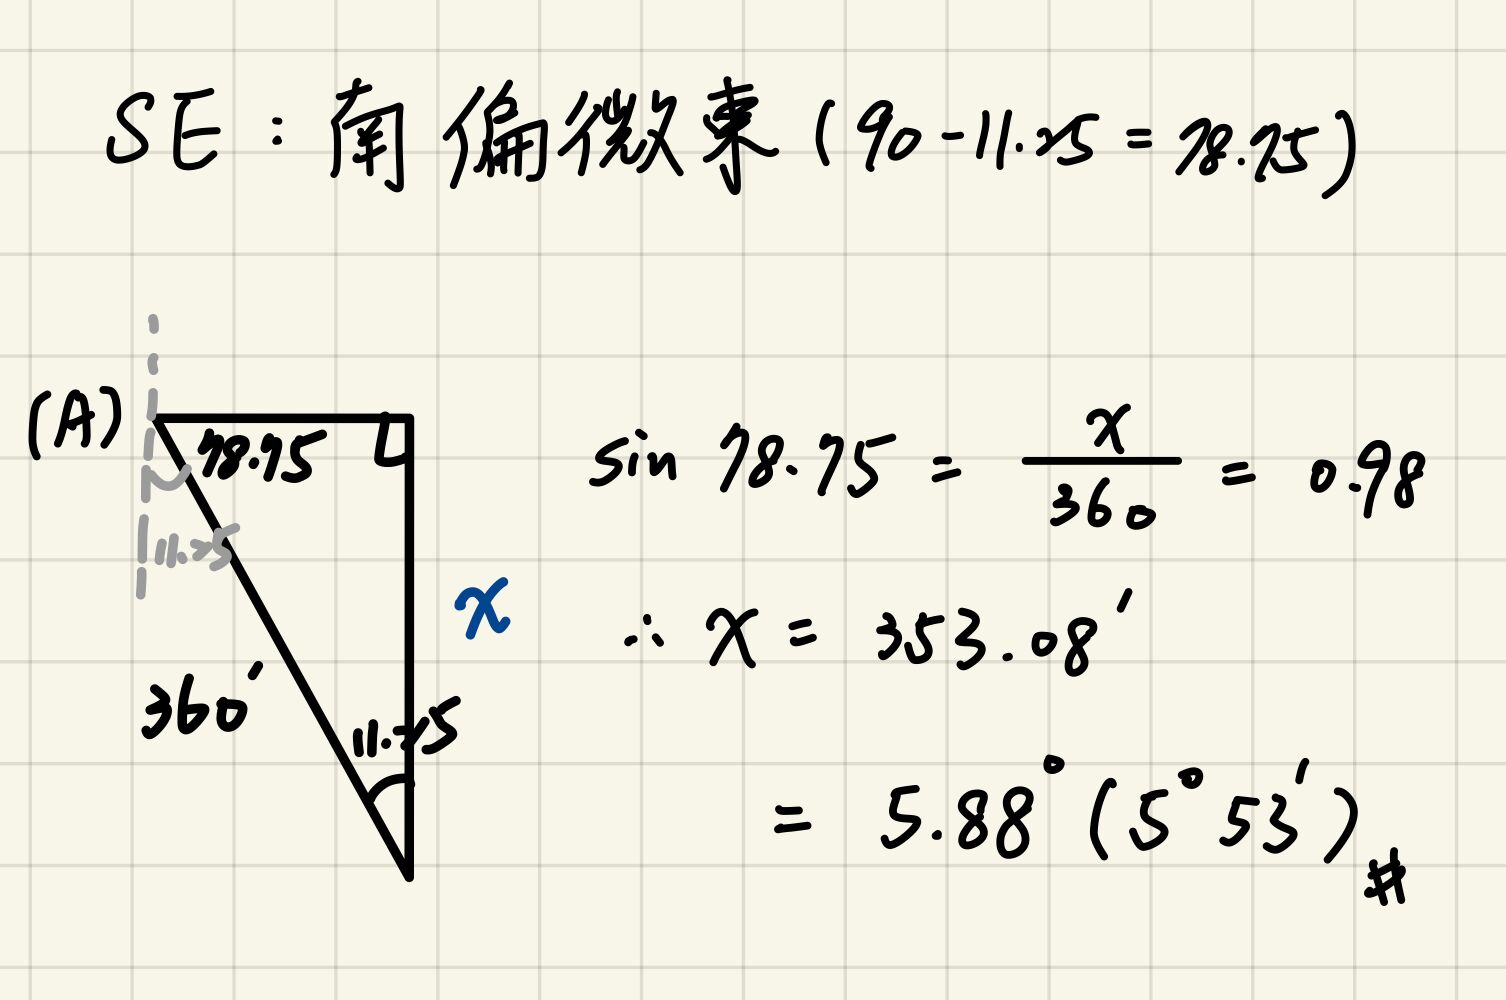 SE : 南偏微東 (90-11.25 = 78.75)
(A)
78.75
11.25
360'
11.25
x
sin 78.75 = x/360 = 0.98
∴ x = 353.08'
= 5.88° (5° 53') #